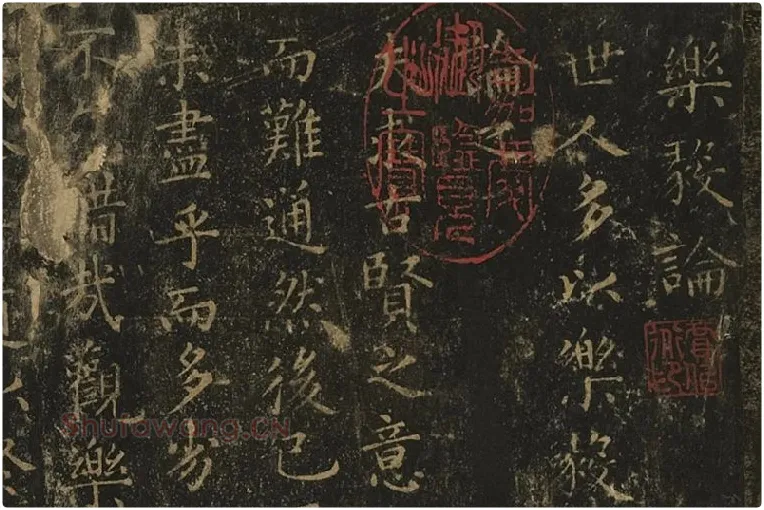 樂毅論
世人多以樂毅
論之
夫求古賢之意
而難通然後已
未盡乎而多劣
不亦惜哉觀樂
Shufawang.CN